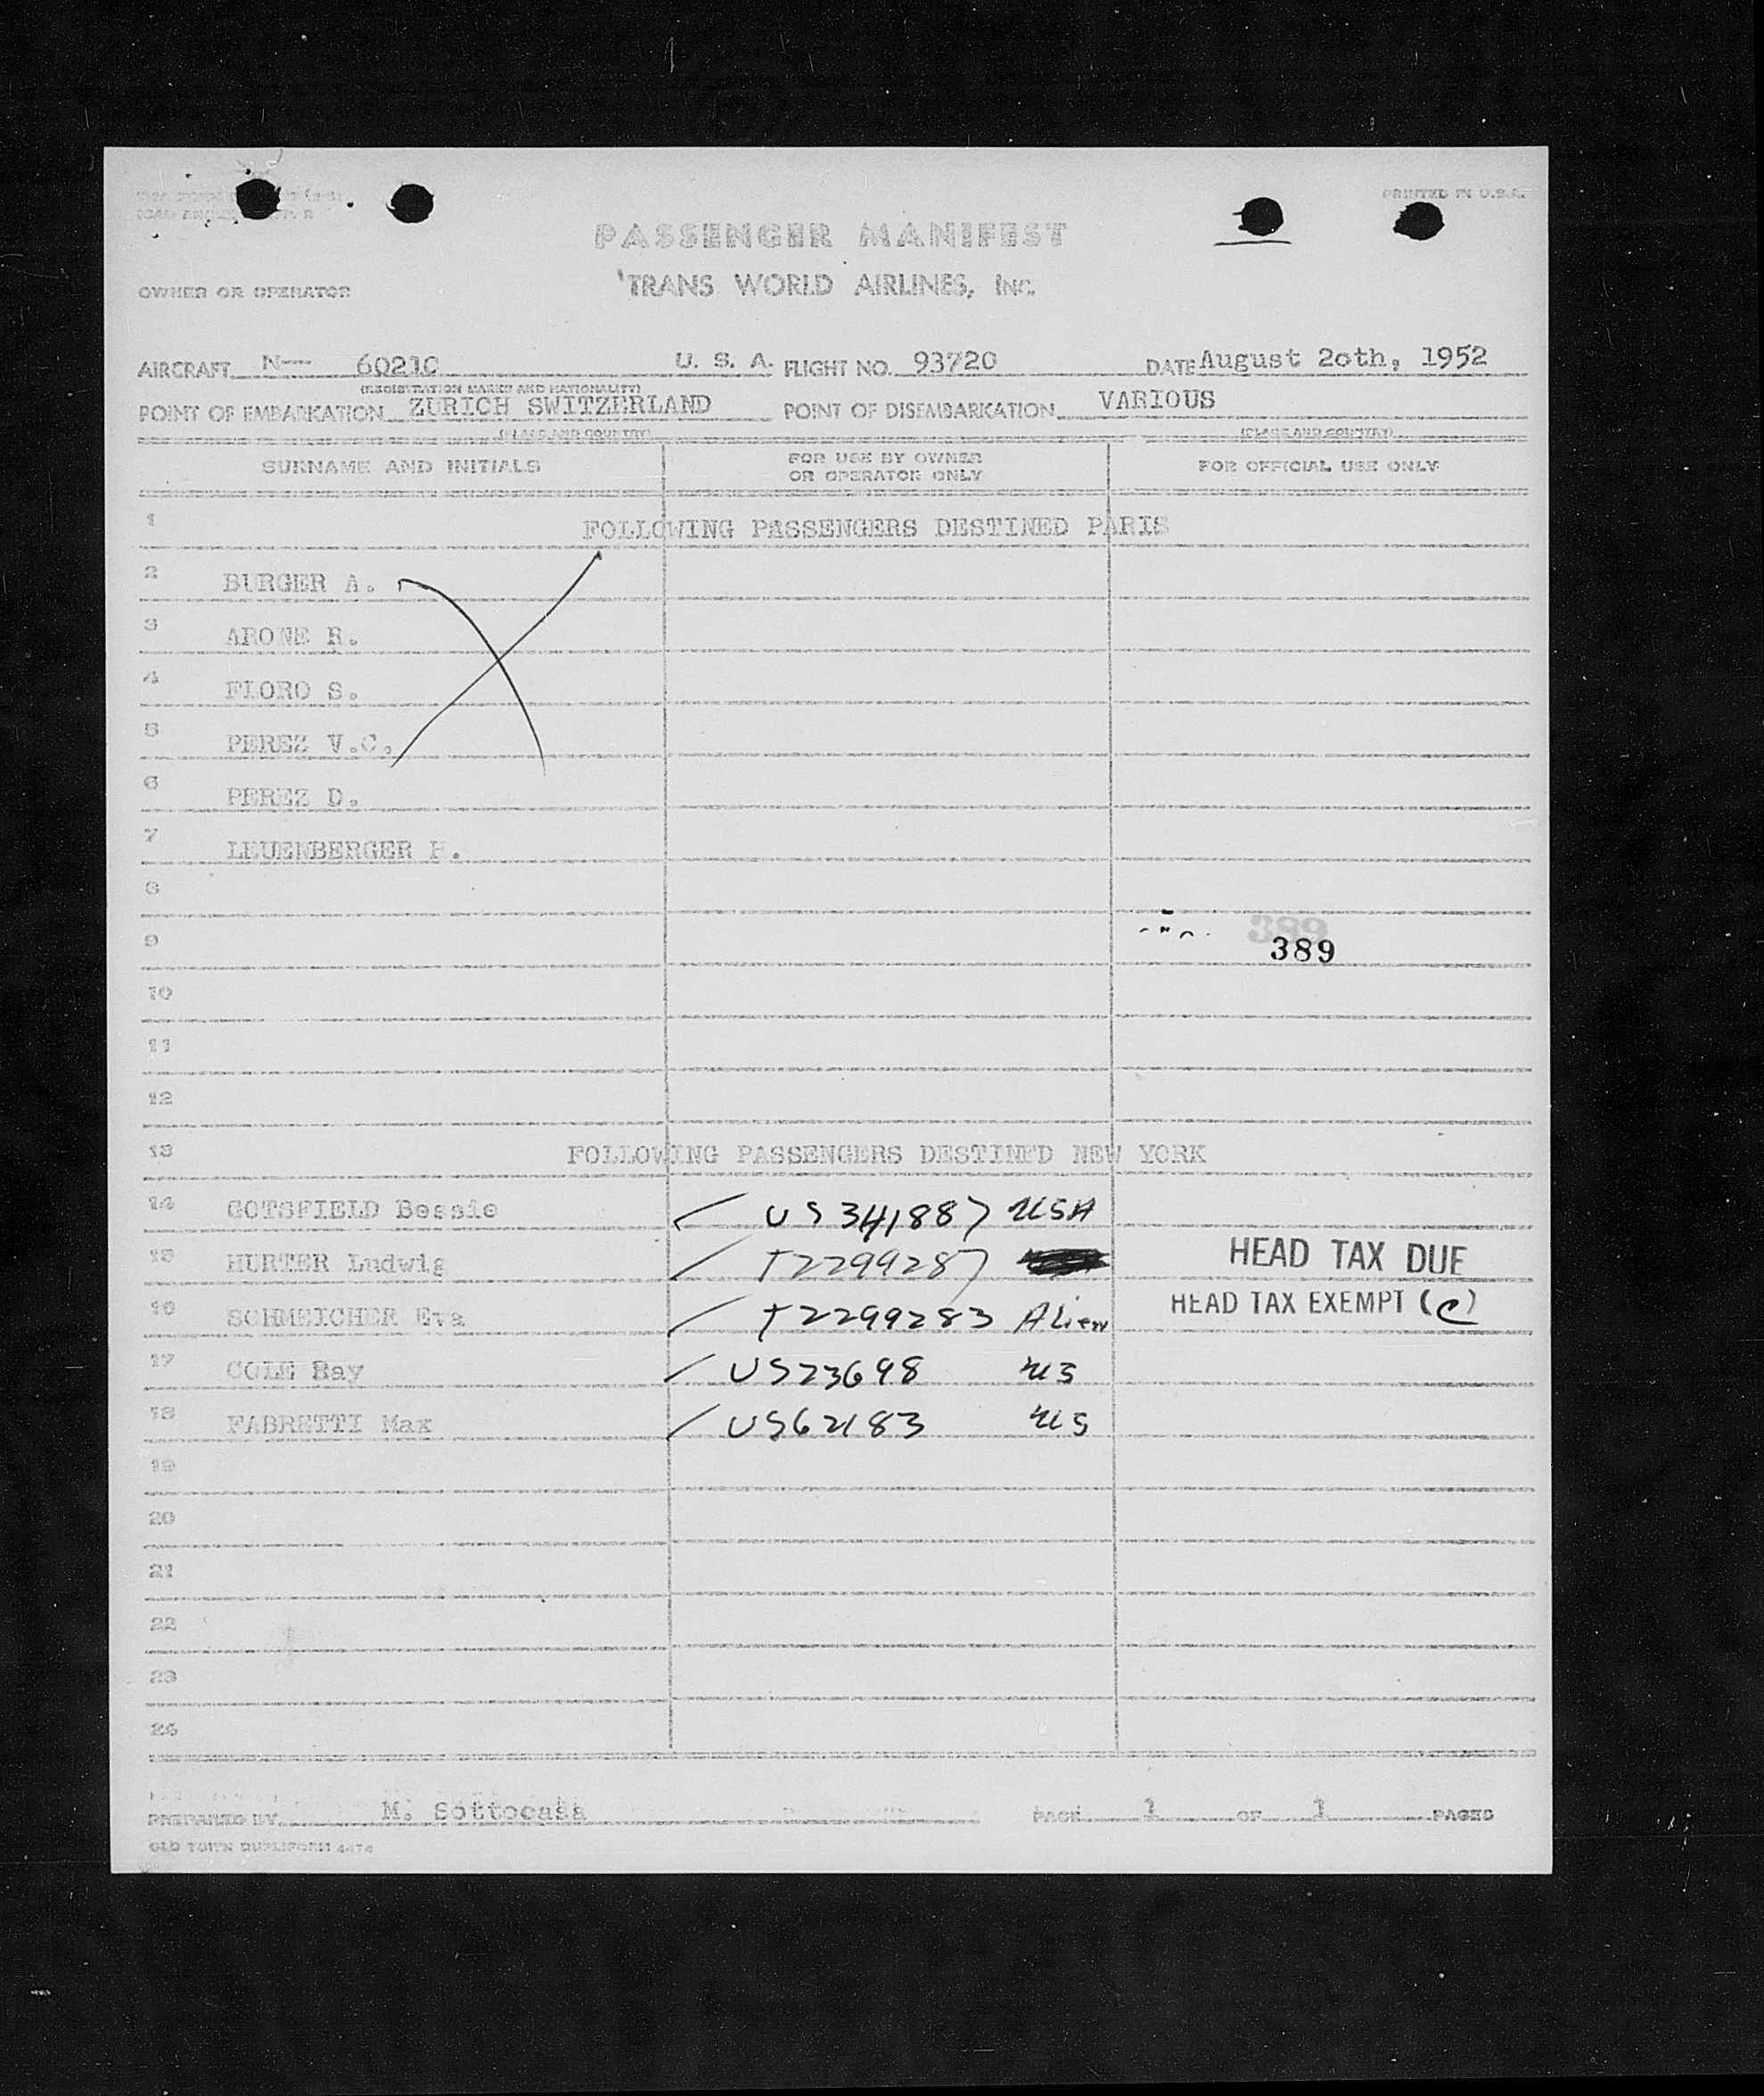 PRINTED IN U.S.A.
PASSENGER MANIFEST
OWNER OR OPERATOR TRANS WORLD AIRLINES, INC.
AIRCRAFT N— 6021C U. S. A. FLIGHT NO. 93720 DATE August 2oth, 1952
(REGISTRATION MARKS AND NATIONALITY)
POINT OF EMBARKATION ZURICH SWITZERLAND POINT OF DISEMBARKATION VARIOUS
(PLACE AND COUNTRY) (PLACE AND COUNTRY)
SURNAME AND INITIALS FOR USE BY OWNER OR OPERATOR ONLY FOR OFFICIAL USE ONLY
1 FOLLOWING PASSENGERS DESTINED PARIS
2 BURGER A.
3 ARONE R.
4 FLORO S.
5 PEREZ V.C.
6 PEREZ D.
7 LEUENBERGER H.
8
9 389
10
11
12
13 FOLLOWING PASSENGERS DESTINED NEW YORK
14 GOTSFIELD Bessie US 341887 USA
15 HURTER Ludwig T2299287 HEAD TAX DUE
16 SCHMEICHER Eva T2299283 Alien HEAD TAX EXEMPT (C)
17 COLE Ray US23698 US
18 FABRETTI Max US62183 US
19
20
21
22
23
PREPARED BY M. Sottocasa PAGE 1 OF 1 PAGES
OLD TOWN DUPLIFORM